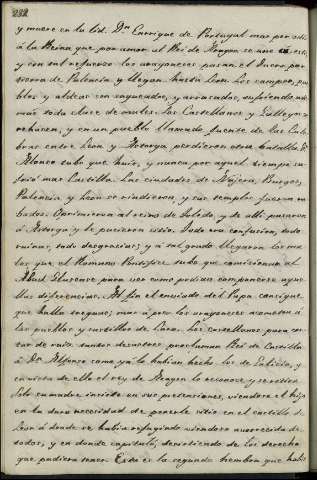 232
y muere en la lid. Dn. Enrrique de Portugal mas por odio
á la Reina que por amor al Rei de Aragon se une á este
y con tal refuerzo los aragoneses pasan el Duero por
acerca de Palencia y llegan hasta Leon. Los campos, pue-
blos y aldeas son saqueadas, y arrasadas, sufriendo ade-
mas toda clase de males. Los Castellanos y Gallegos se
rehacen, y en un pueblo llamado, fuente de las Cule-
bras entre Leon y Astorga perdieron otra batalla. Dn.
Alonso tubo que huir, y nunca por aquel tiempo su-
frió mas Castilla. Las ciudades de Najera, Burgos,
Palencia, y Leon se rindieron, y sus templos fueron ro-
bados. Oprimieron al reino de Toledo, y de alli pasaron
á Astorga y le pusieron sitio. Todo era confusion, todo
ruinas, todo desgracias; y á tal grado llegaron los ma-
les que el Romano Pontifice tubo que comisionar al
Abad Clusense para ver como podian componerse aque-
llas diferencias. Al fin el enviado del Papa consigue
que halla treguas; mas á poco los aragoneses acometen á
los pueblos y castillos de Lara. Los castellanos para cor-
tar de raiz tantos desastres proclaman Rei de Castilla
á Dn. Alfonso como ya lo habian hecho los de Galicia, y
en vista de ello el rey de Aragon lo reconoce y se retira.
Solo su madre insiste en sus pretensiones, viendose el hijo
en la dura necesidad de ponerle sitio en el castillo de
Leon á donde se habia refugiado viendose aborrecida de
todos, y en donde capituló, desistiendo de los derechos
que pudiera tener. Esta es la segunda hembra que habi